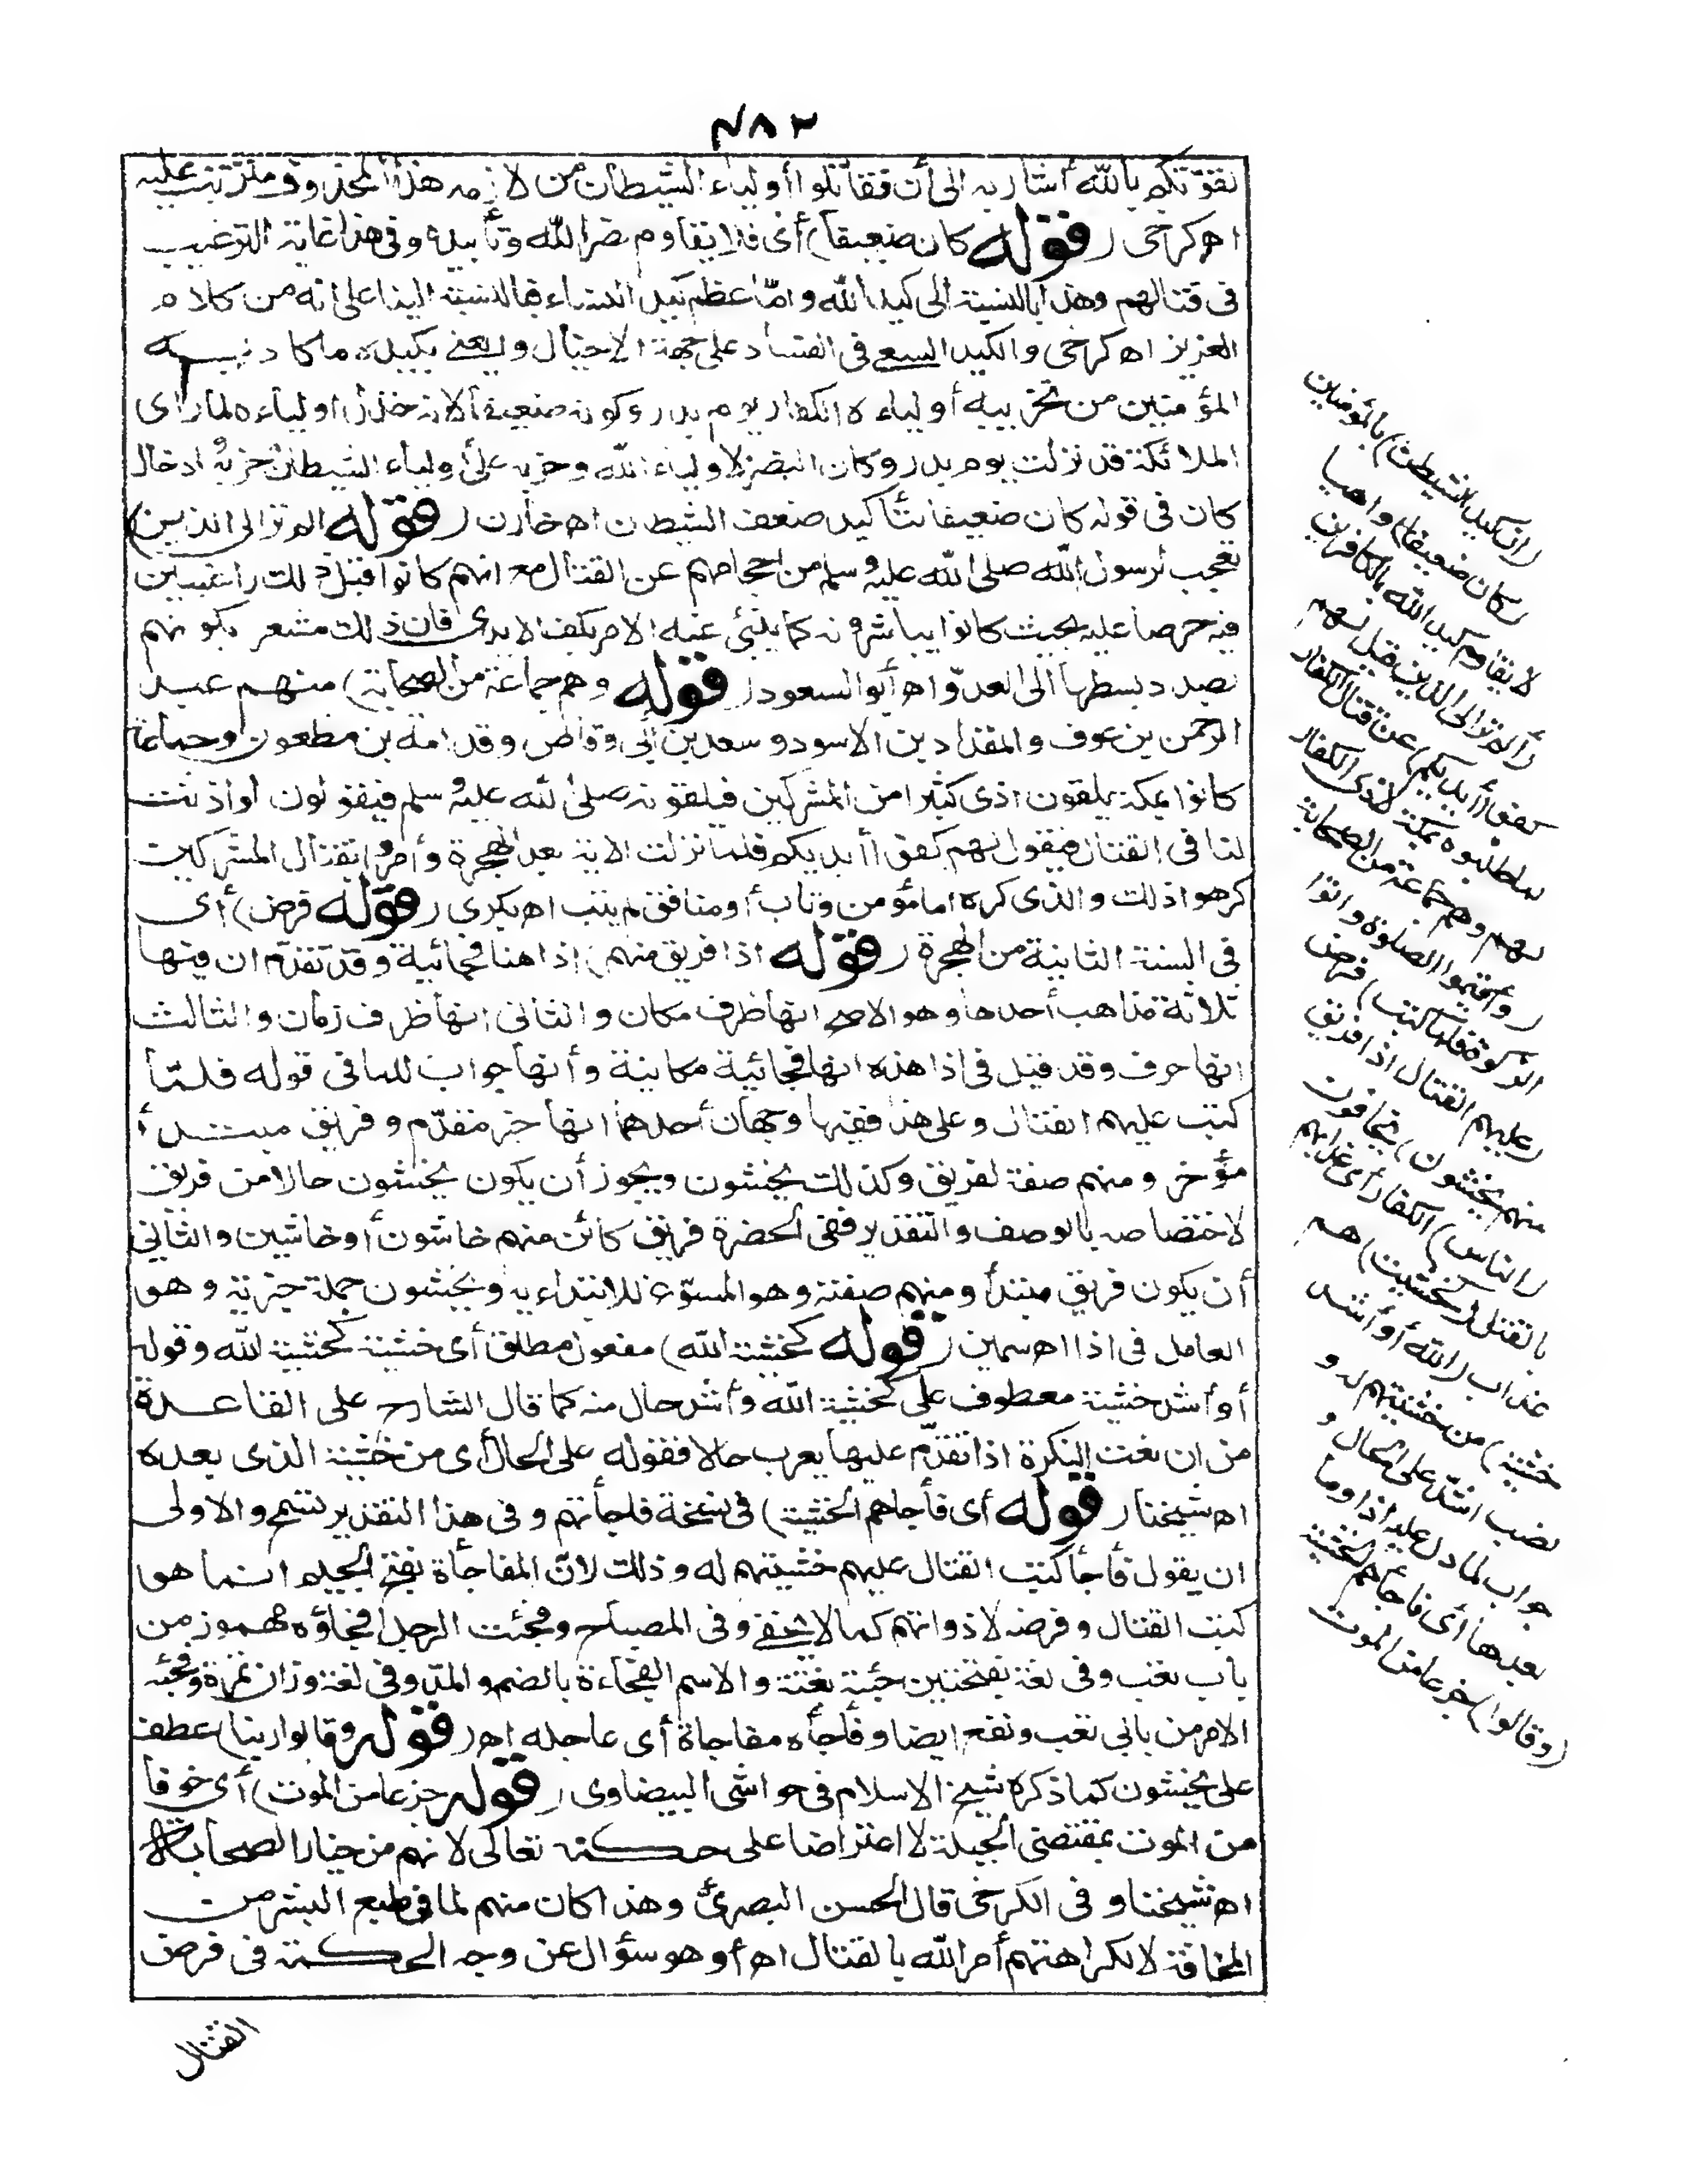 ٤٨٢
لقوّتكم بالله أشار به الى أن فقاتلوا أولياء الشيطان من لازمه هذا المحذوف مترتب عليه
اه كرخى (قوله كان ضعيفا) أى فلا يقاوم نصر الله وتأييده وفى هذا غاية الترغيب
فى قتالهم وهذا بالنسبة الى كيد الله وامّا عظم كيد النساء فبالنسبة الينا على انه من كلام
العزيز اه كرخى والكيد السعى فى الفساد على جهة الاحتيال ويعنى بكيده ما كاد به
المؤمنين من تحزيبه أولياءه الكفار يوم بدر وكونه ضعيفا لانه خذل اولياءه لما رأى
الملائكة قد نزلت يوم بدر وكان النصر لاولياء الله وحزبه على أولياء الشيطان وحزبه وادخال
كان فى قوله كان ضعيفا لتأكيد ضعف الشيطان اه خازن (قوله الم تر الى الذين)
تعجيب لرسول الله صلى الله عليه وسلم من احجامهم عن القتال مع انهم كانوا قبل ذلك راغبين
فيه حرصا عليه بحيث كانوا يباشرونه كما ينبئ عنه الامر بكف الايدى فان ذلك مشعر بكونهم
بصدد بسطها الى العدوّ اه أبو السعود (قوله وهم جماعة من الصحابة) منهم عبد
الرحمن بن عوف والمقداد بن الاسود وسعد بن أبى وقاص وقدامة بن مظعون وجماعة
كانوا بمكة يلقون اذى كثيرا من المشركين فيلقونه صلى الله عليه وسلم فيقولون لو اذنت
لنا فى القتال فيقول لهم كفوا أيديكم فلما نزلت الاية بعد الهجرة وأمروا بقتال المشركين
كرهوا ذلك والذى كره اما مؤمن وتاب أو منافق لم يتب اه بكرى (قوله فرض) أى
فى السنة الثانية من الهجرة (قوله اذا فريق منهم) اذا هنا فجائية وقد تقدّم ان فيها
ثلاثة مذاهب أحدها وهو الاصح انها ظرف مكان والثانى انها ظرف زمان والثالث
انها حرف وقد قيل فى اذا هذه انها فجائية مكانية وأنها جواب للما فى قوله فلمّا
كتب عليهم القتال وعلى هذا ففيها وجهان أحدهما انها خبر مقدّم وفريق مبتدأ
مؤخر ومنهم صفة لفريق وكذلك يخشون ويجوز أن يكون يخشون حالا من فريق
لاختصاصه بالوصف والتقدير ففى الحضرة فريق كائن منهم خاشون أو خاشين والثانى
أن يكون فريق مبتدأ ومنهم صفته وهو المسوّغ للابتداء به ويخشون جملة خبرية وهو
العامل فى اذا اه سمين (قوله كخشية الله) مفعول مطلق أى خشية كخشية الله وقوله
أو أشد خشية معطوف على كخشية الله وأشد حال منه كما قال الشارح على القاعدة
من ان نعت النكرة اذا تقدّم عليها يعرب حالا فقوله على الحال أى من خشية الذى بعده
اه شيخنا (قوله أى فأجاهم الخشية) فى نسخة فاجأتهم وفى هذا التقدير تسمح والاولى
ان يقول فأجأ كتب القتال عليهم خشيتهم له وذلك لانّ المفاجأة بفتح الجيم انما هو
كتب القتال وفرضه لا ذواتهم كما لا يخفى وفى المصباح وفجئت الرجل افجأؤه مهموز من
باب تعب وفى لغة بفتحتين جئته بغتة والاسم الفجاءة بالضم والمدّ وفى لغة وزان تمرة وفجئه
الامر من بابى تعب ونفع ايضا وفاجأه مفاجاة أى عاجله اه (قوله وقالوا ربنا) عطف
على يخشون كما ذكره شيخ الاسلام فى حواشى البيضاوى (قوله جزعا من الموت) أى خوفا
من الموت بمقتضى الجبلة لا اعتراضا على حكمه تعالى لانهم من خيار الصحابة
اه شيخنا وفى الكرخى قال الحسن البصرى وهذا كان منهم لما فى طبع البشر من
المخافة لا لكراهتهم أمر الله بالقتال اه أو هو سؤال عن وجه الحكمة فى فرض
القتال
(ان كيد الشيطن) بالمؤمنين
(كان ضعيفا) واهيا
لا يقاوم كيد الله بالكافرين
(ألم تر الى الذين قيل لهم
كفوا أيديكم) عن قتال الكفار
لما طلبوه بمكة لاذى الكفار
لهم وهم جماعة من الصحابة
(وأقيموا الصلوة واتوا
الزكوة فلما كتب) فرض
(عليهم القتال اذا فريق
منهم يخشون) يخافون
(الناس) الكفار أى عذابهم
بالقتل (كخشيت) هم
عذاب (الله أو أشد
خشية) من خشيتهم له و
نصب اشدّ على الحال و
جواب لما دل عليه اذا وما
بعدها أى فاجأهم الخشية
(وقالوا) جزعا من الموت